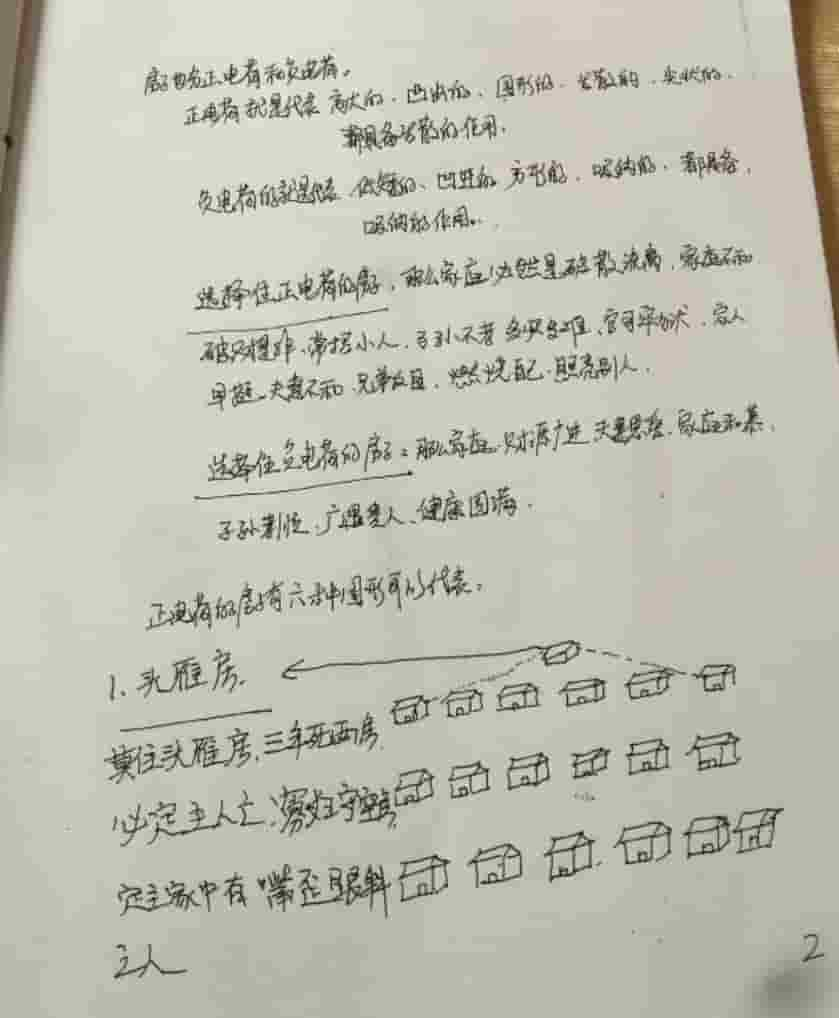 房子也分正电荷和负电荷。
正电荷就是代表 高大的、凸出的、圆形的、发散的、尖状的、
都具备发散的作用。
负电荷的就是代表 低矮的、凹进的 方形的、吸纳的、都具备,
吸纳的作用。
选择住正电荷的房子,那么家庭必然是破散流离,家庭不和
破财、常招小人、子孙不孝 多灾多难、官司牢狱、家人
早逝、夫妻不和 兄弟反目,燃烧自己、照亮别人。
选择住负电荷的房子:那么家庭、财源广进 夫妻恩爱、家庭和慕、
子孙、广遇贵人、健康圆满。
正电荷的房子有六种图形可以代表。
1. 头雁房.
莫住头雁房,三年死两房
必定主人亡、寡妇守空房
定主家中有 嘴歪眼斜
之人
2